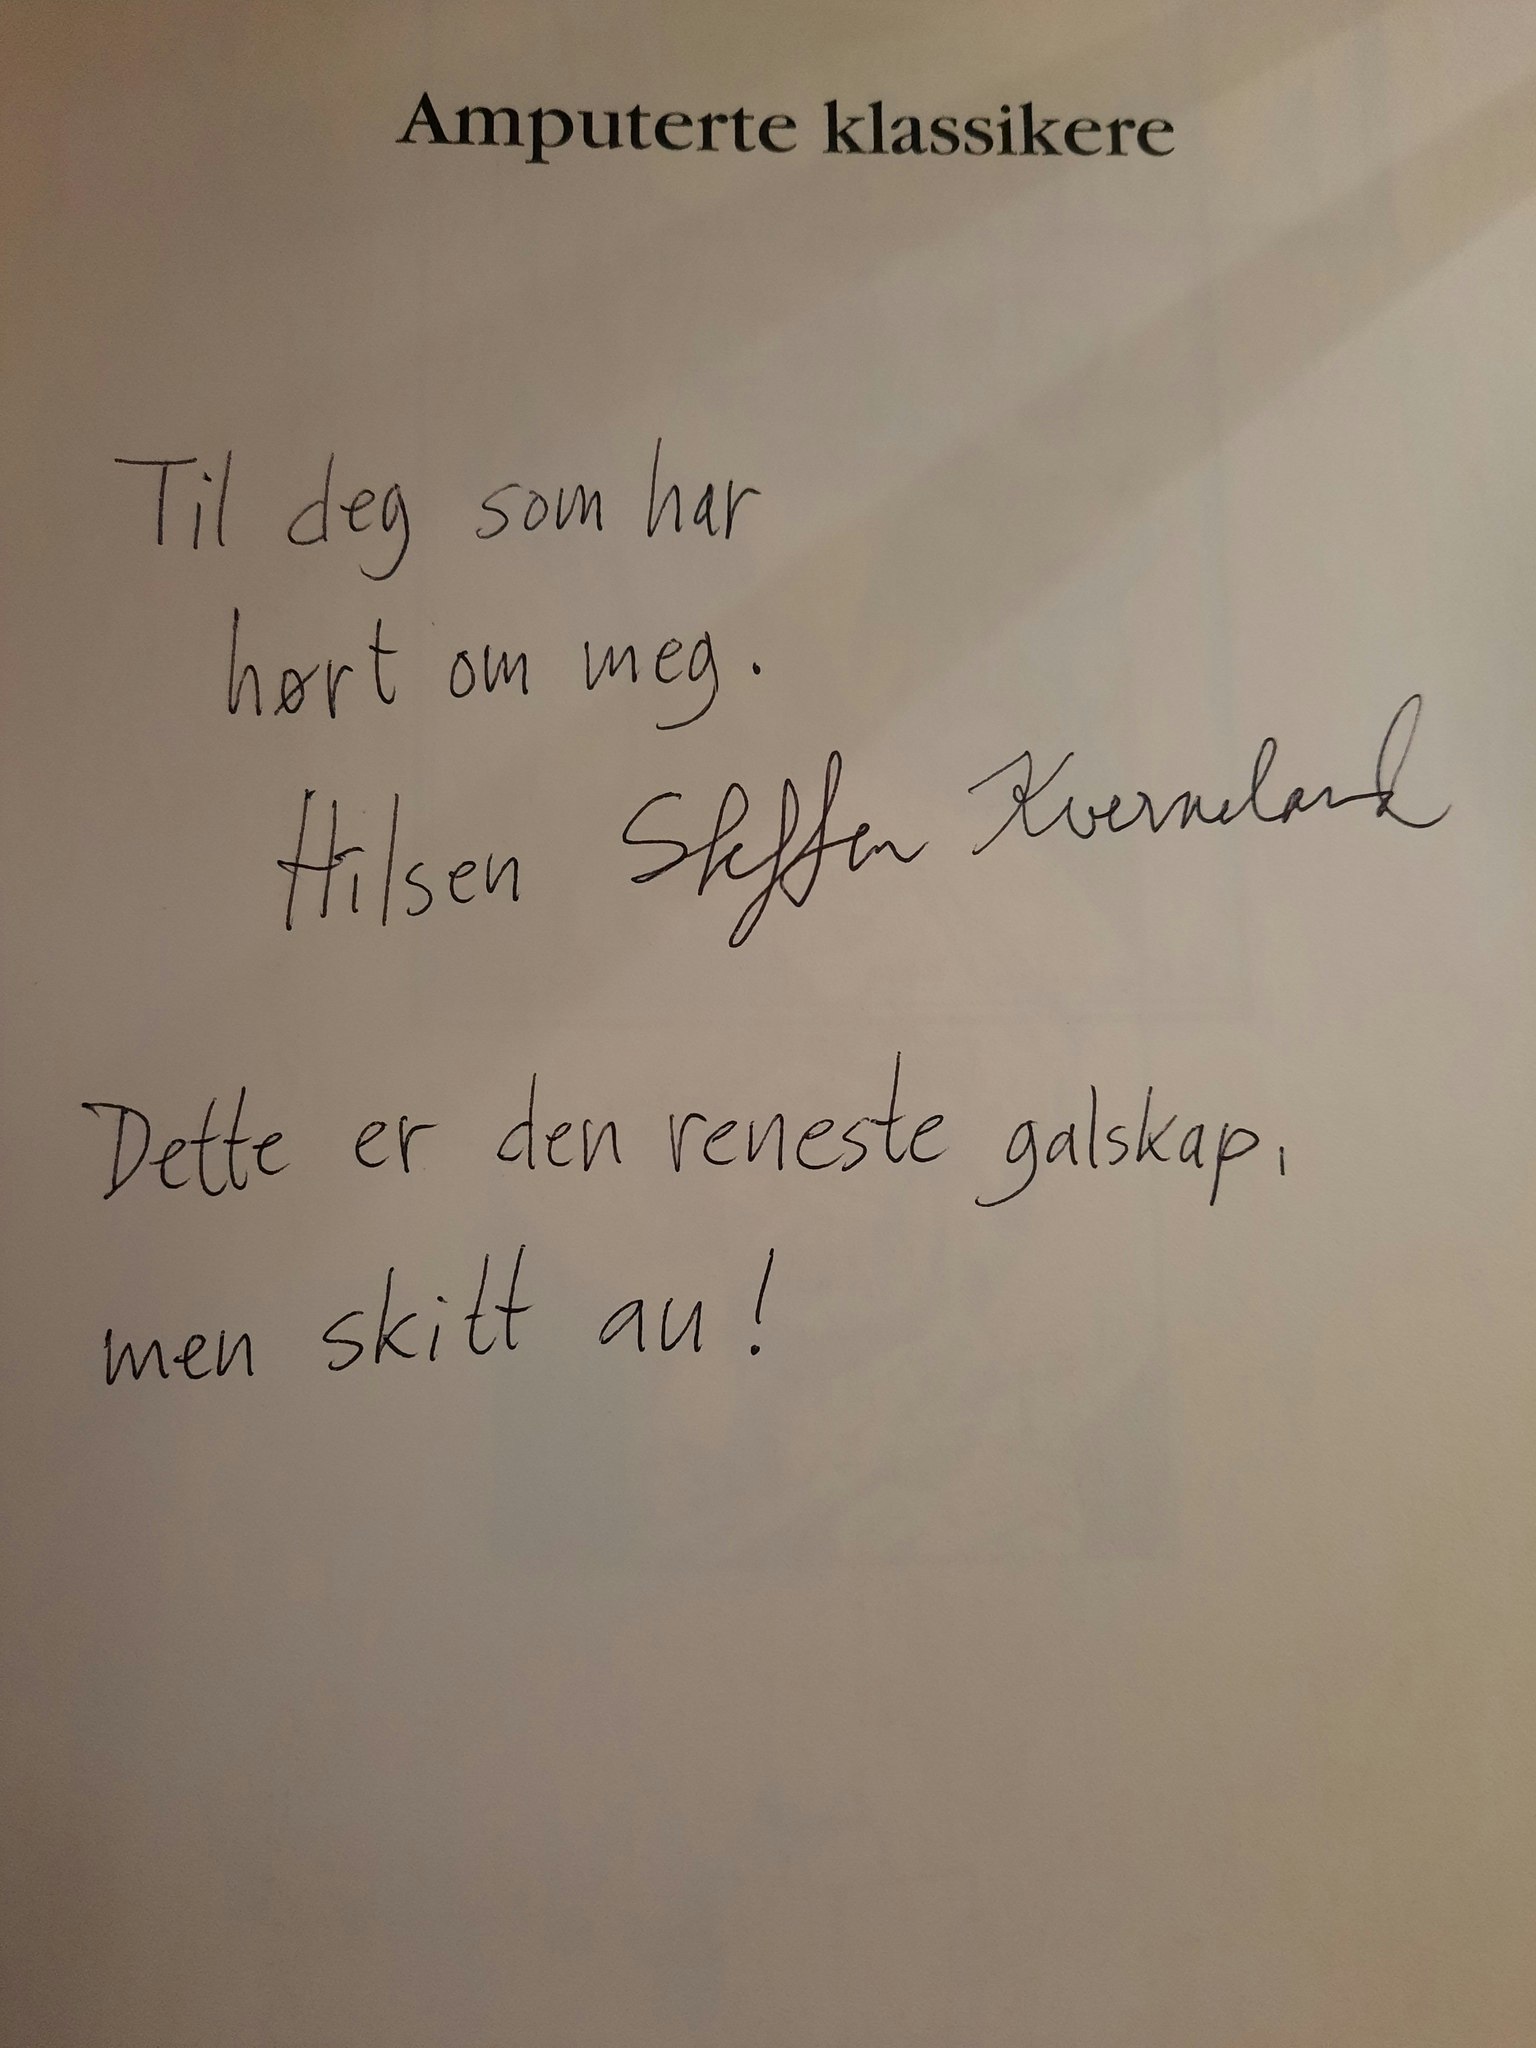 Amputerte klassikere
Til deg som har
hørt om meg.
Hilsen Steffen Kverneland
Dette er den reneste galskap,
men skitt au!